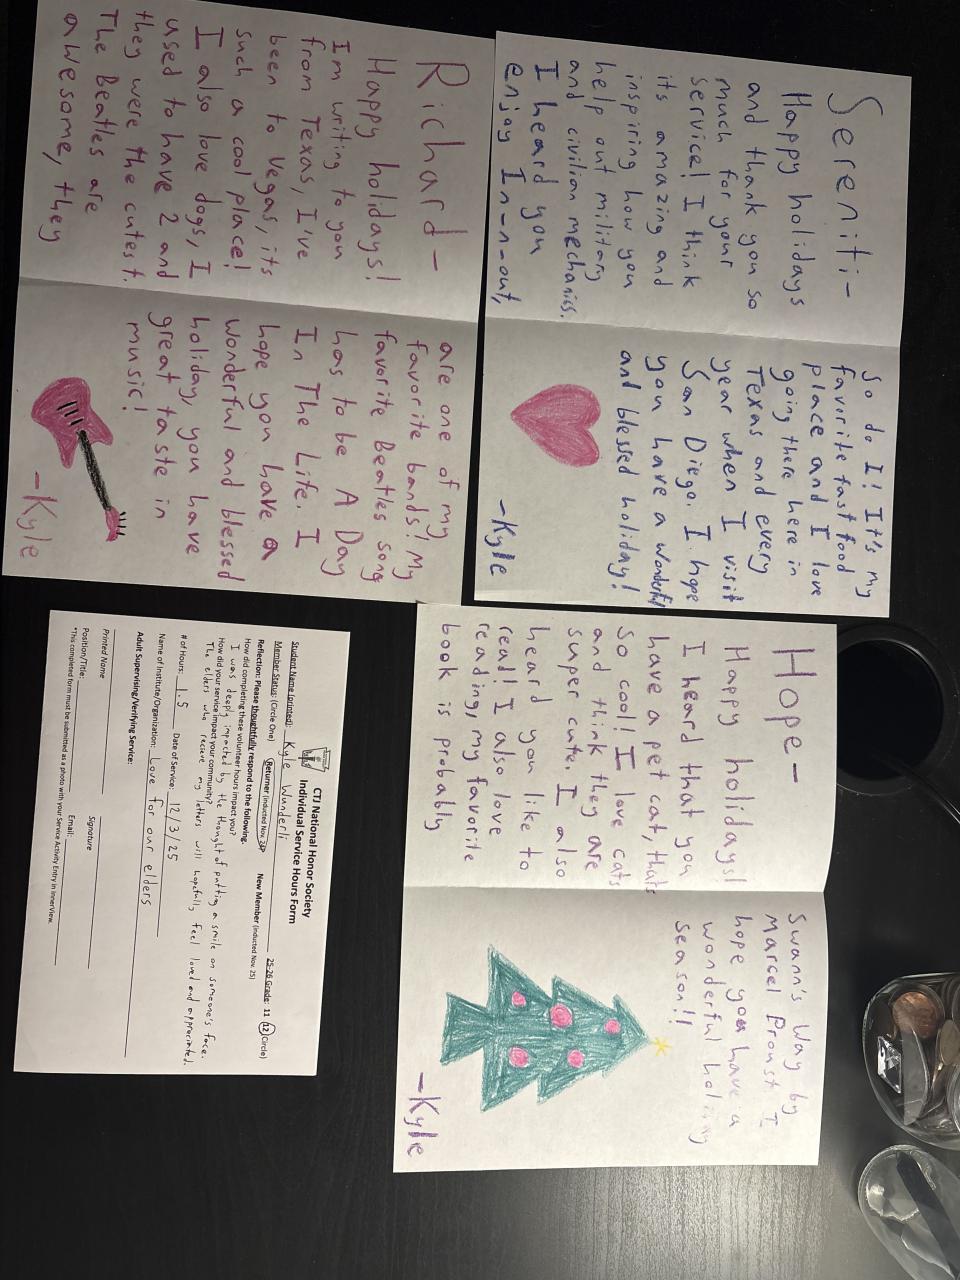 Sereniti-
Happy holidays
and thank you so
much for your
service! I think
its amazing and
inspiring how you
help out military
and civilian mechanics.
I heard you
enjoy In-n-out,
So do I! It's my
favorite fast food
place and I love
going there here in
Texas and every
year when I visit
San Diego. I hope
you have a wonderful
and blessed holiday!
-Kyle
Richard-
Happy holidays!
Im writing to you
from Texas, I've
been to Vegas, its
such a cool place!
I also love dogs, I
used to have 2 and
they were the cutest.
The Beatles are
awesome, they
are one of my
favorite bands! My
favorite Beatles song
has to be A Day
In The Life. I
hope you have a
wonderful and blessed
holiday, you have
great taste in
music!
-Kyle
Hope-
Happy holidays!
I heard that you
have a pet cat, thats
so cool! I love cats
and think they are
super cute. I also
heard you like to
read! I also love
reading, my favorite
book is probably
Swann's Way by
Marcel Proust I
hope you have a
wonderful holiday
season!!
-Kyle
CTJ National Honor Society
Individual Service Hours Form
Student Name (printed): Kyle Wunderli 25-26 Grade: 11 12 (Circle)
Member Status: (Circle One) Returner (inducted Nov. 24) New Member (inducted Nov. 25)
Reflection: Please thoughtfully respond to the following.
How did completing these volunteer hours impact you?
I was deeply impacted by the thought of putting a smile on someone's face.
How did your service impact your community?
The elders who recieve my letters will hopefully feel loved and appreciated.
# of Hours: 1.5 Date of Service: 12/3/25
Name of Institute/Organization: Love for our elders
Adult Supervising/Verifying Service:
Printed Name Signature
Position/Title: Email:
*This completed form must be submitted as a photo with your Service Activity Entry in InnerView.